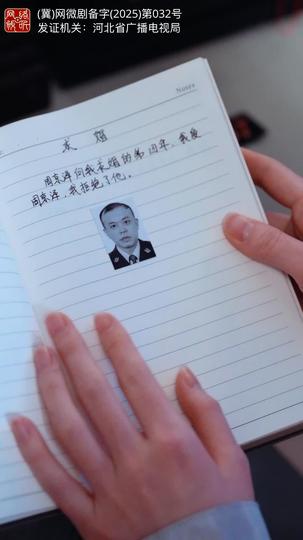 网络视听
(冀)网微剧备字(2025)第032号
发证机关：河北省广播电视局
Notes
求婚
周京泽向我求婚的第四年，我爱
周京泽，我拒绝了他。